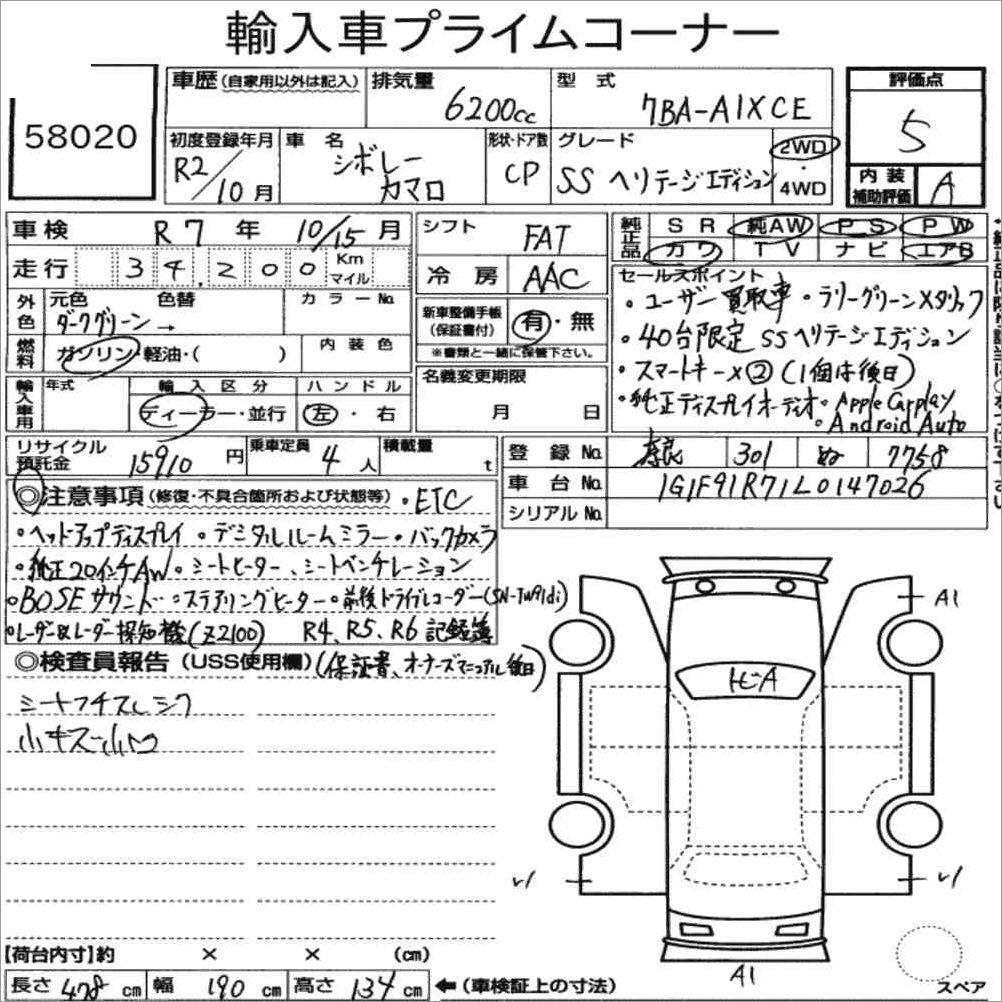 輸入車プライムコーナー
58020
車歴 (自家用以外は記入)
排気量 6200cc
型式 7BA-A1XCE
評価点 5
初度登録年月 R2/10月
車名 シボレー カマロ
形状・ドア数 CP
グレード SS ヘリテージエディション
2WD・4WD
内装補助評価 A
車検 R7年 10/15月
走行 34,200 Km マイル
シフト FAT
冷房 AAC
純正品 SR 純AW PS PW
カワ TV ナビ エアB
外色 元色 ダークグリーン→ 色替
カラーNo.
燃料 ガソリン・軽油・( )
内装色
新車整備手帳(保証書付) 有・無
※書類と一緒に保管下さい。
セールスポイント
・ユーザー買取車 ・ラリーグリーンメタリック
・40台限定 SSヘリテージエディション
・スマートキー×② (1個は後日)
・純正ディスプレイオーディオ ・Apple Carplay
・Android Auto
輸入車用 年式
輸入区分 ディーラー・並行
ハンドル 左・右
名義変更期限 月 日
リサイクル預託金 15910円
乗車定員 4人
積載量 t
登録No. 奈良 301 ぬ 7758
車台No. 1G1F91R71L0147026
シリアルNo.
◎注意事項 (修復・不具合箇所および状態等) ・ETC
・ヘッドアップディスプレイ ・デジタルルームミラー ・バックカメラ
・純正20インチAW ・シートヒーター、シートベンチレーション
・BOSEサウンド ・ステアリングヒーター ・前後ドライブレコーダー(SN-TW91di)
・レーダー&レーザー探知機(Z2100) R4、R5、R6記録簿
◎検査員報告 (USS使用欄) (保証書、オーナーズマニュアル後日)
シートフチスレシワ
小キズ小凹
A1
ヒA
レ1
レ1
A1
【荷台内寸】約 × × (cm)
長さ 478 cm 幅 190 cm 高さ 134 cm ←(車検証上の寸法)
スペア